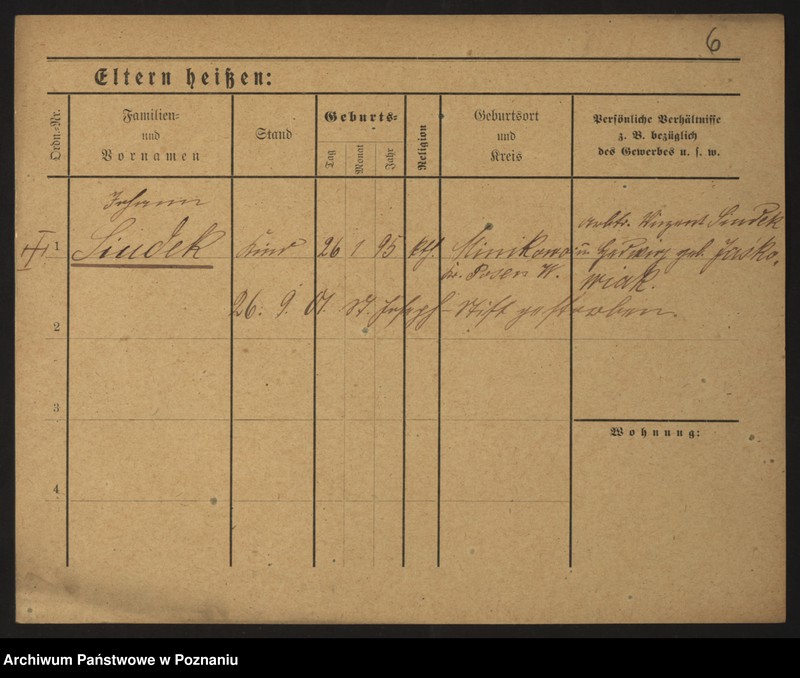 6
Eltern heißen:
Ordn.-Nr.
Familien-
und
Vornamen
Stand
Geburts-
Tag
Monat
Jahr
Religion
Geburtsort
und
Kreis
Persönliche Verhältnisse
z. B. bezüglich
des Gewerbes u. s. w.
Johann
1 Siudek Kind 26 1 95 kth. Minikowo
Kr. Posen W.
Arbtr. Vinzent Siudek
u. Hedwig geb. Jasko-
wiak.
26. 9. 01. St. Joseph-Stift gestorben.
2
3
Wohnung:
4
Archiwum Państwowe w Poznaniu